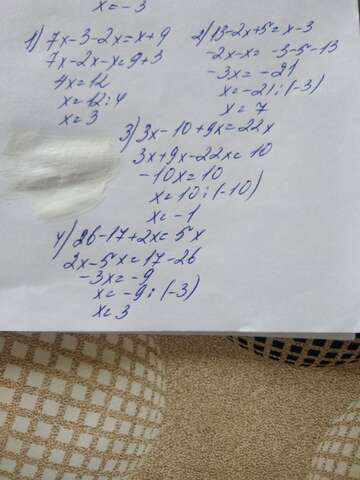 x = -3
1) 7x-3-2x=x+9
7x-2x-x=9+3
4x=12
x=12:4
x=3
2) 13-2x+5=x-3
-2x-x=-3-5-13
-3x=-21
x=-21:(-3)
x=7
3) 3x-10+9x=22x
3x+9x-22x=10
-10x=10
x=10:(-10)
x=-1
4) 26-17+2x=5x
2x-5x=17-26
-3x=-9
x=-9:(-3)
x=3